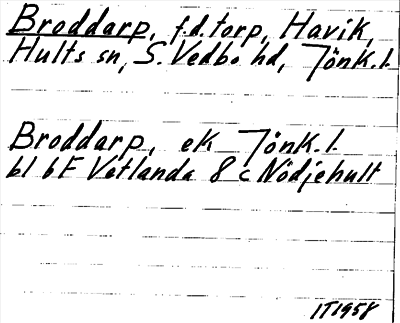 Broddarp, f.d. torp, Havik,
Hults sn, S. Vedbo hd, Jönk. l.
Broddarp, ek Jönk. l.
bl 6F Vetlanda 8 c Nödjehult
IT1958